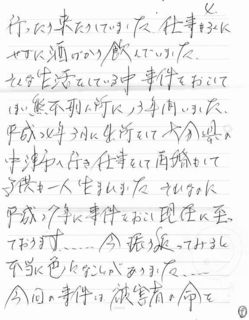 4
行ったり来たりしていました。仕事もろくに
せずに酒ばかり飲んでいました。
そんな生活をしている中事件をおこして
しまい熊本刑ム所に13年間いました。
平成24年3月に出所をして大分県の
中津市へ行き仕事をして再婚もして
子供も一人生まれました。それなのに
平成27年に事件をおこし現在に至っ
ております……今振り返ってみると
本当に色々なことがありました……
今回の事件は被害者の命を